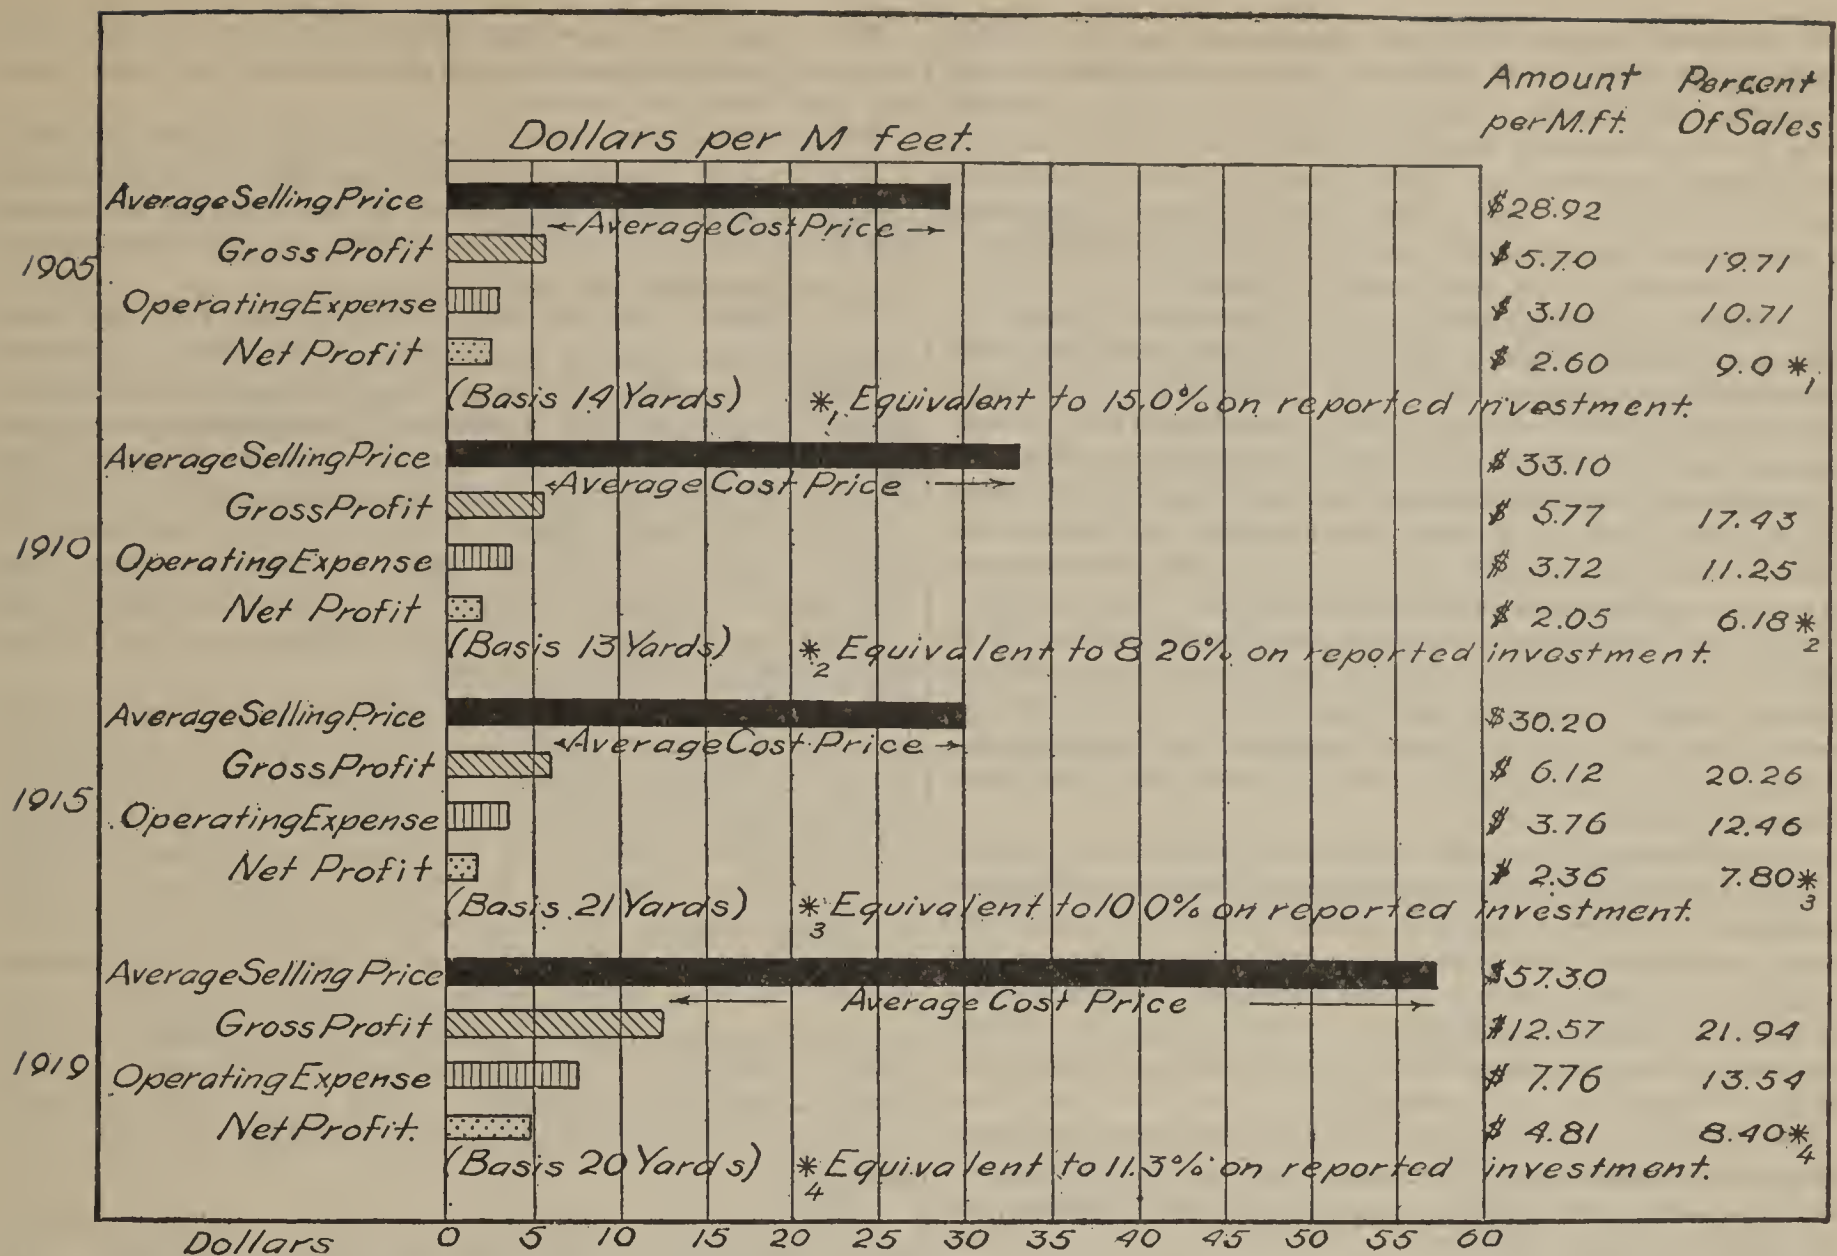 Amount Percent
per M.ft. Of Sales
Dollars per M feet.
Average Selling Price $28.92
←Average Cost Price→
1905
Gross Profit $5.70 19.71
Operating Expense $ 3.10 10.71
Net Profit $ 2.60 9.0 *1
(Basis 14 Yards) *1 Equivalent to 15.0% on reported investment.
Average Selling Price $ 33.10
←Average Cost Price →
Gross Profit $ 5.77 17.43
1910
Operating Expense $ 3.72 11.25
Net Profit $ 2.05 6.18 *2
(Basis 13 Yards) *2 Equivalent to 8 26% on reported investment.
Average Selling Price $30.20
←Average Cost Price→
Gross Profit $ 6.12 20.26
1915
Operating Expense $ 3.76 12.46
Net Profit $ 2.36 7.80 *3
(Basis 21 Yards) *3 Equivalent to 10 0% on reported investment.
Average Selling Price $57.30
← Average Cost Price →
Gross Profit $12.57 21.94
1919
Operating Expense $ 7.76 13.54
Net Profit. $ 4.81 8.40 *4
(Basis 20 Yards) *4 Equivalent to 11.3% on reported investment.
Dollars 0 5 10 15 20 25 30 35 40 45 50 55 60